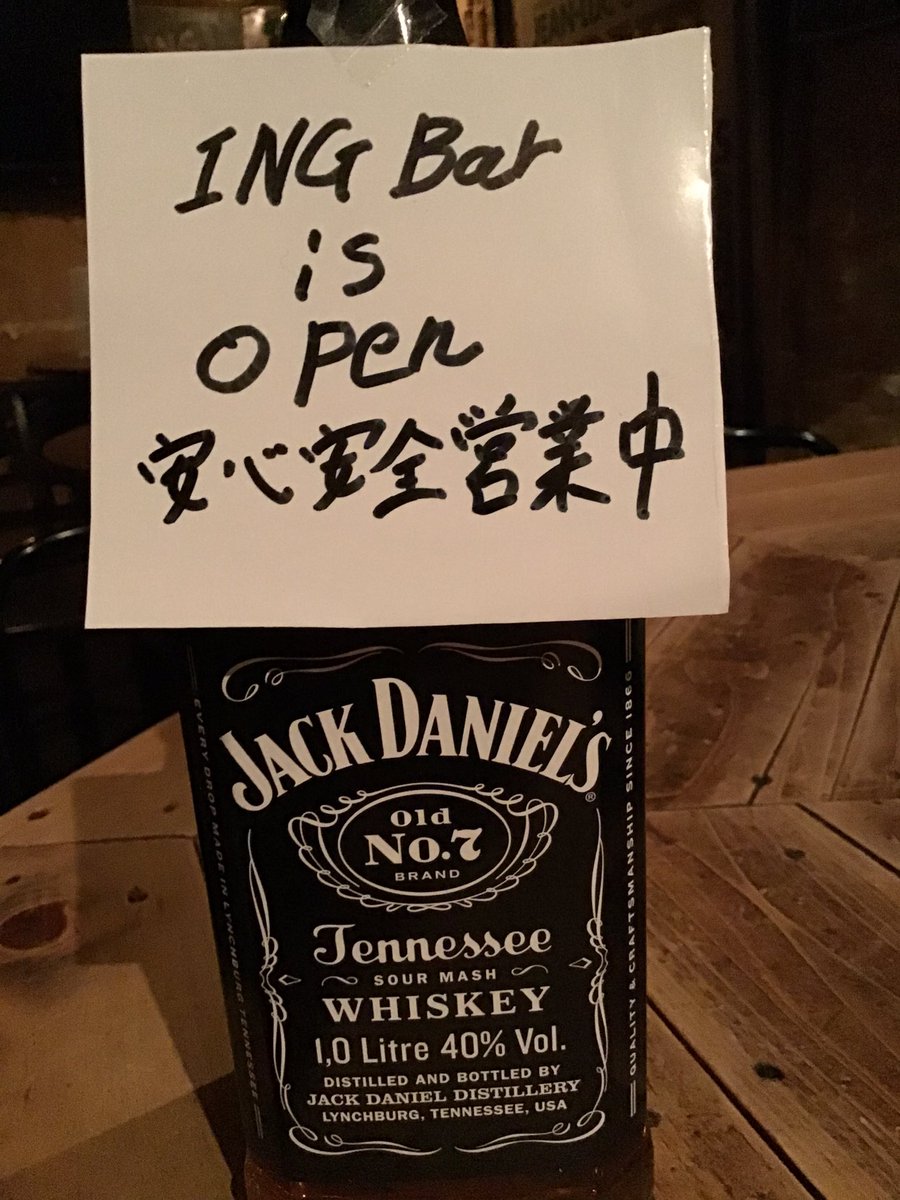 ING Bar
is
open
安心安全営業中
JACK DANIEL'S
®
Old
No.7
BRAND
Tennessee
SOUR MASH
WHISKEY
1,0 Litre 40% Vol.
DISTILLED AND BOTTLED BY
JACK DANIEL DISTILLERY
LYNCHBURG, TENNESSEE, USA
EVERY DROP MADE IN LYNCHBURG, TENNESSEE
QUALITY & CRAFTSMANSHIP SINCE 1866